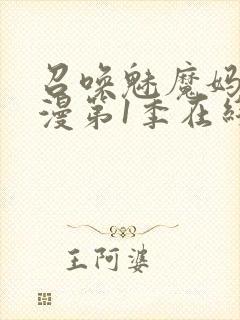 召唤魅魔妈
漫第1季在线
王阿婆